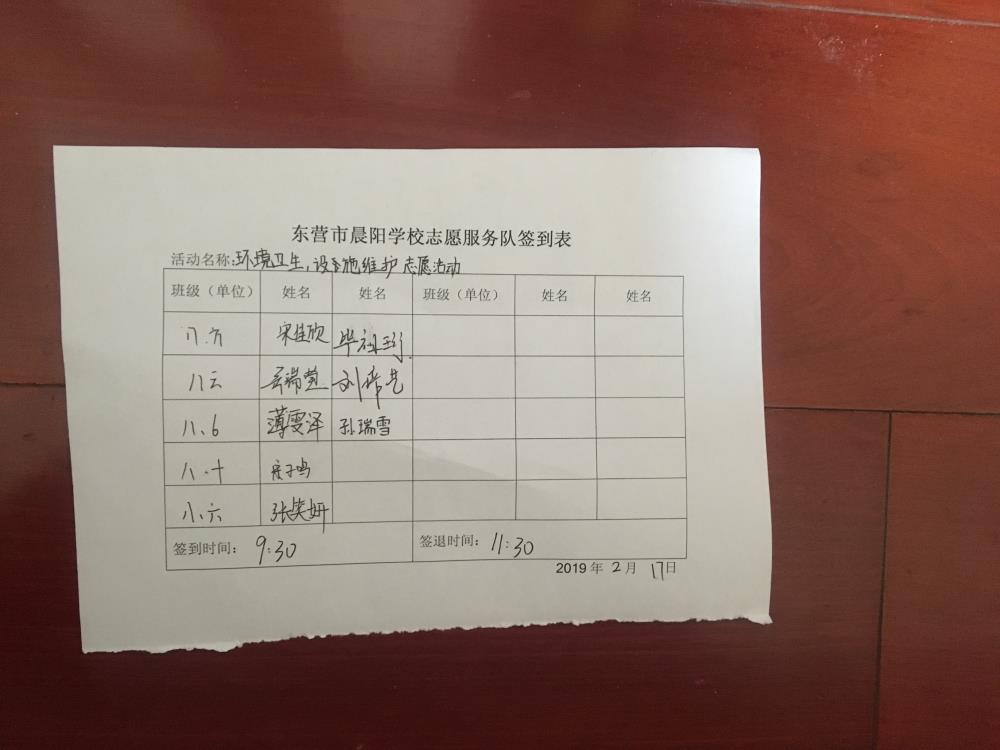 东营市晨阳学校志愿服务队签到表
活动名称:环境卫生,设施维护志愿活动
班级（单位） 姓名 姓名 班级（单位） 姓名 姓名
八.六 宋佳欣
八云 刘希艺
八.6 薄雯泽 孙瑞雪
八.十
八.六 张笑妍
签到时间：9:30 签退时间：11:30
2019年2月17日